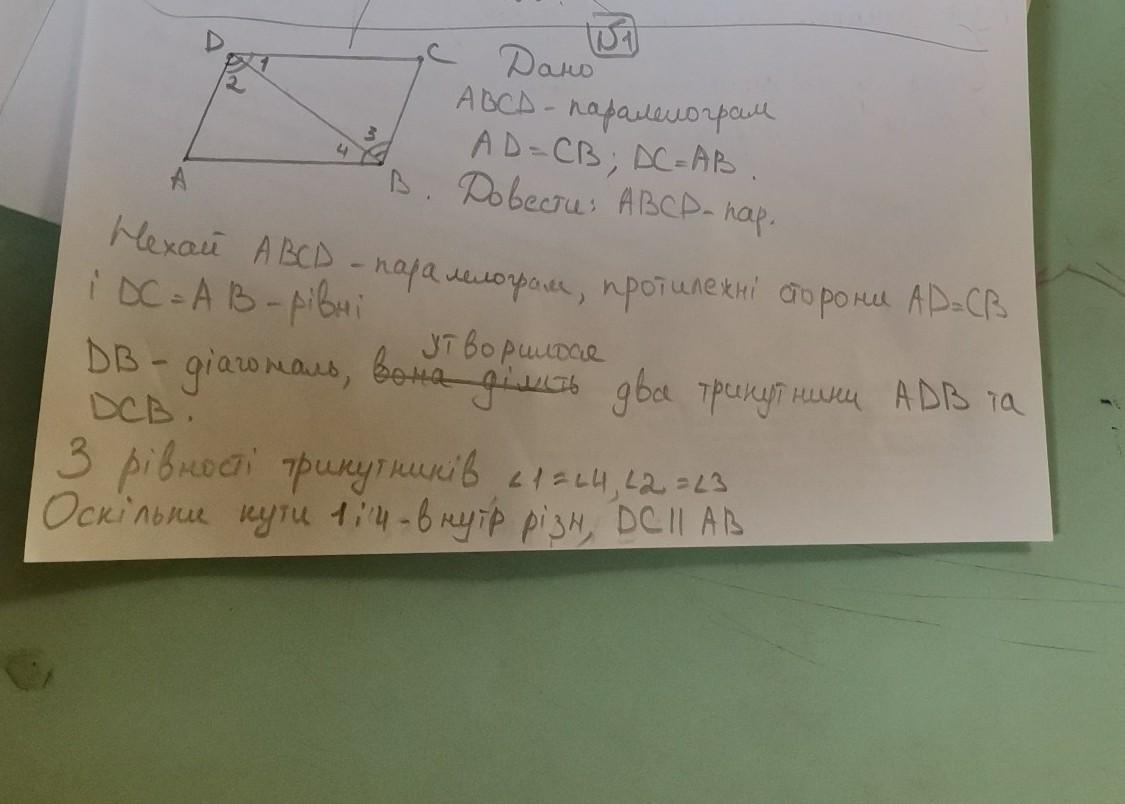 №1
D 1 C
2
3
4
A B
Дано
ABCD - паралелограм
AD=CB; DC=AB.
Довести: ABCD-пар.
Нехай ABCD - паралелограм, протилежні сторони AD=CB
і DC=AB - рівні
утворилося
DB - діагональ, вона ділить два трикутники ADB та
DCB.
З рівності трикутників ∠1=∠4, ∠2=∠3
Оскільки кути 1 і 4 - внутр різн, DC || AB